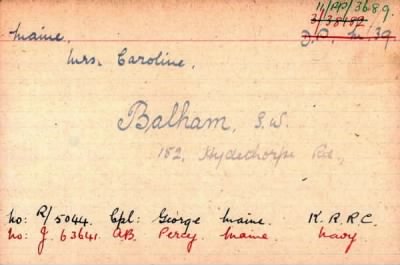 11/PP/3689.
3/38489
Maine. D.P. M. 39.
Mrs. Caroline.
Balham, S.W.
152, Hydethorpe Rd.,
No: R/5044. Cpl: George Maine. K.R.R.C.
No: J. 63641. A.B. Percy. Maine. Navy